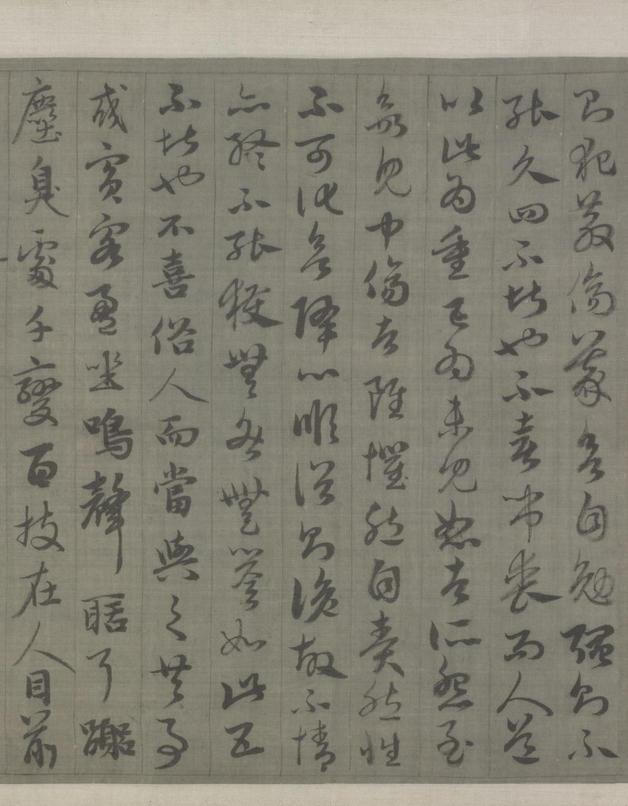 則犯教傷義欲自勉強則不
能久四不堪也不喜弔喪而人道
以此為重已為未見恕者所怨至
欲見中傷者雖懼然自責然性
不可化欲降心順俗則詭故不情
亦終不能獲無咎無譽如此五
不堪也不喜俗人而當與之共事
或賓客盈坐鳴聲聒耳囂
塵臭處千變百技在人目前